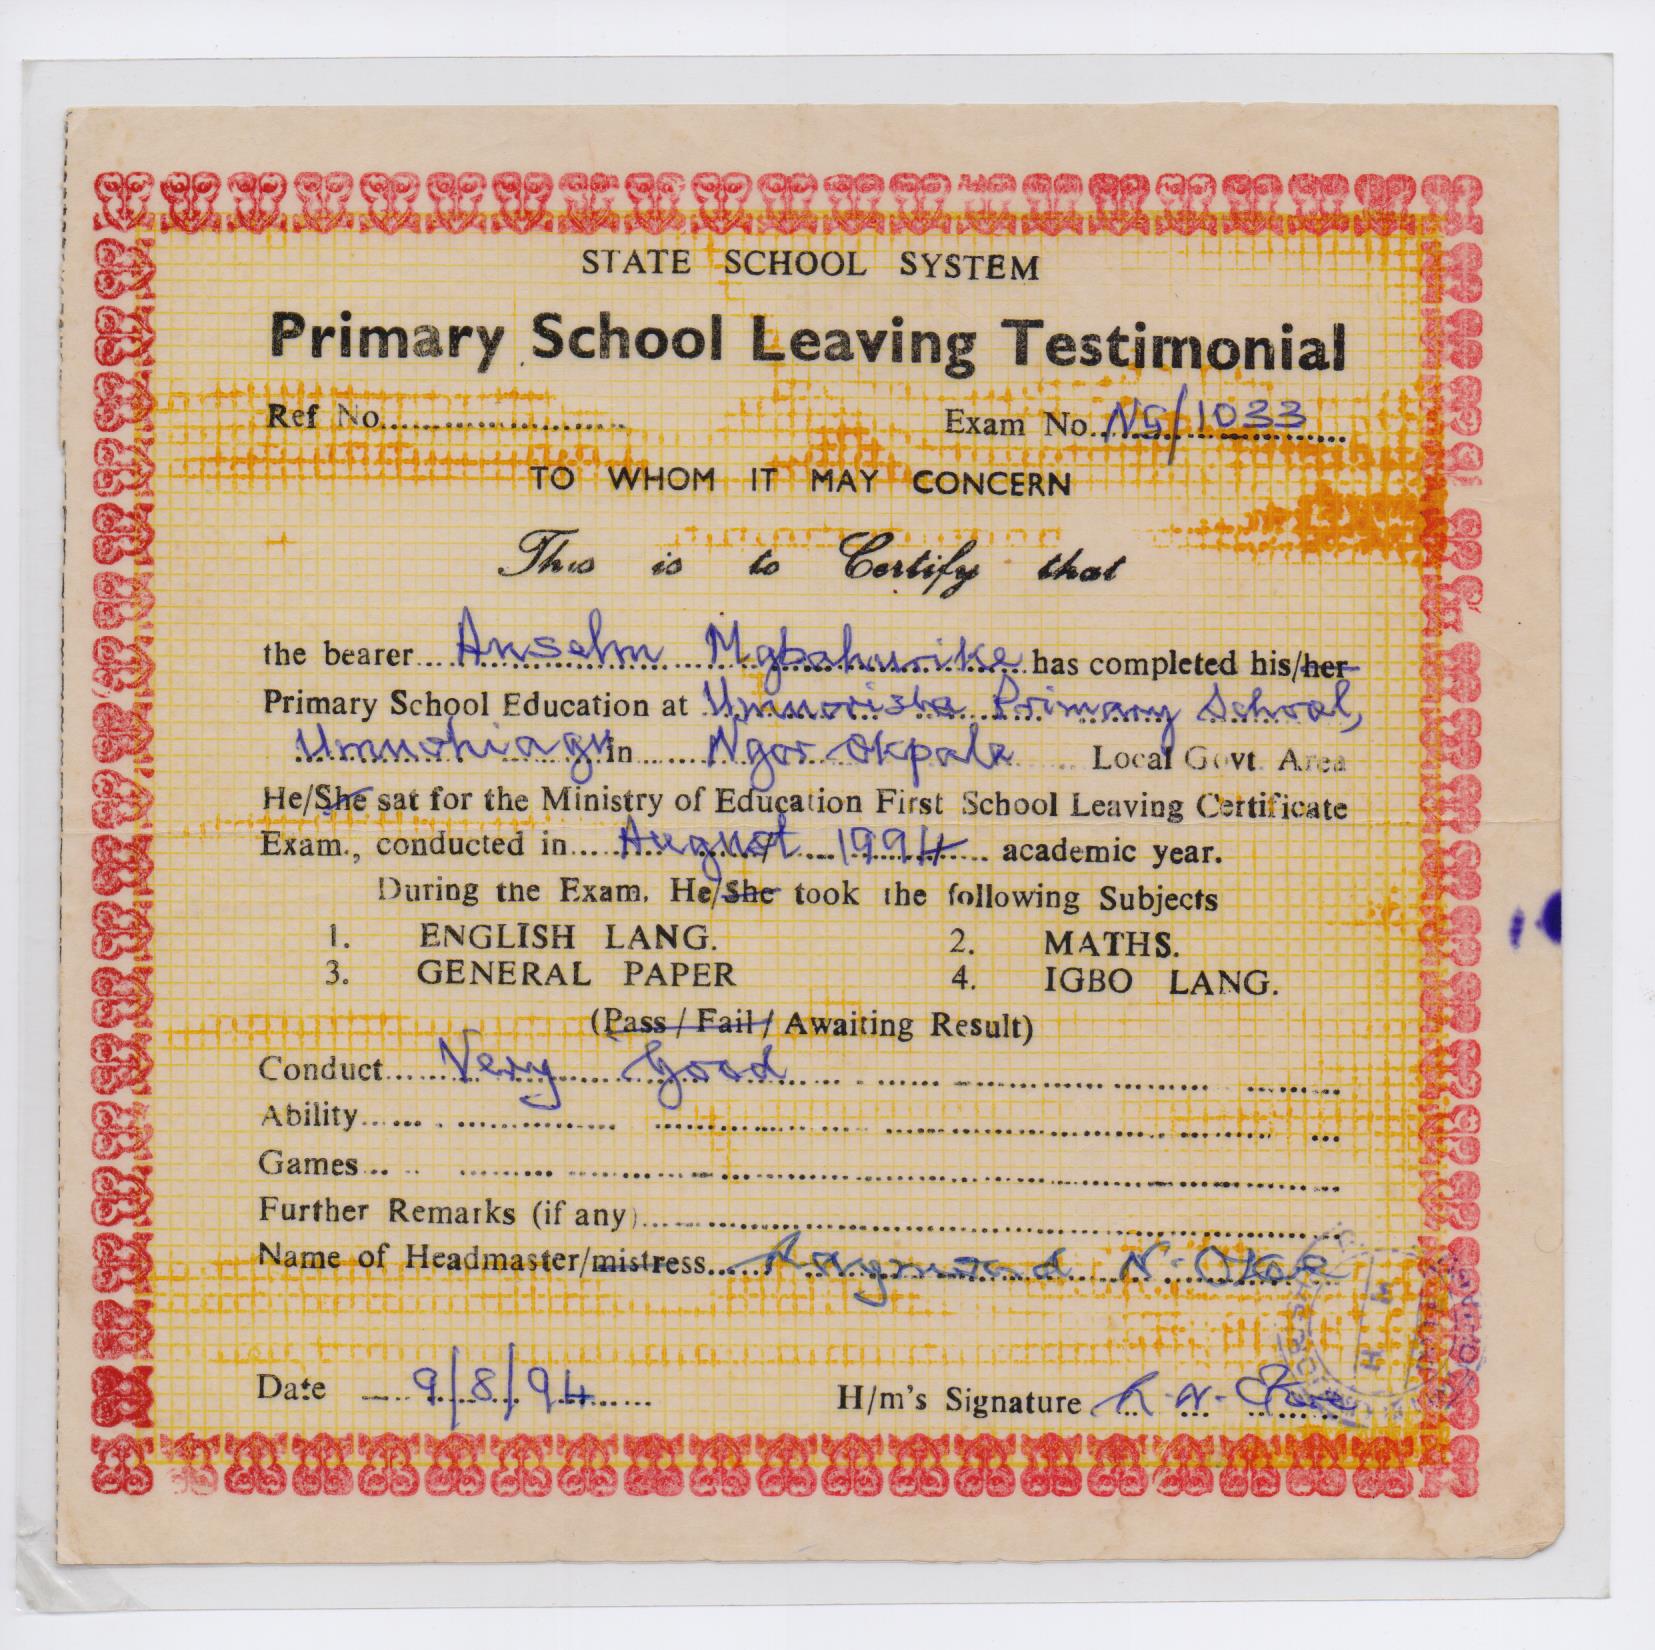 STATE SCHOOL SYSTEM
Primary School Leaving Testimonial
Ref No........................ Exam No. NG/1033
TO WHOM IT MAY CONCERN
This is to Certify that
the bearer Anselm Mgbahurike has completed his/her
Primary School Education at Umuorisha Primary School,
Umuohiagu in Ngor Okpala Local Govt. Area
He/She sat for the Ministry of Education First School Leaving Certificate
Exam., conducted in August 1994 academic year.
During the Exam. He/She took the following Subjects
1. ENGLISH LANG. 2. MATHS.
3. GENERAL PAPER 4. IGBO LANG.
(Pass / Fail / Awaiting Result)
Conduct Very Good
Ability
Games
Further Remarks (if any)
Name of Headmaster/mistress Raymond N. Okoe
Date 9/8/94 H/m's Signature R. N. Okoe
H M